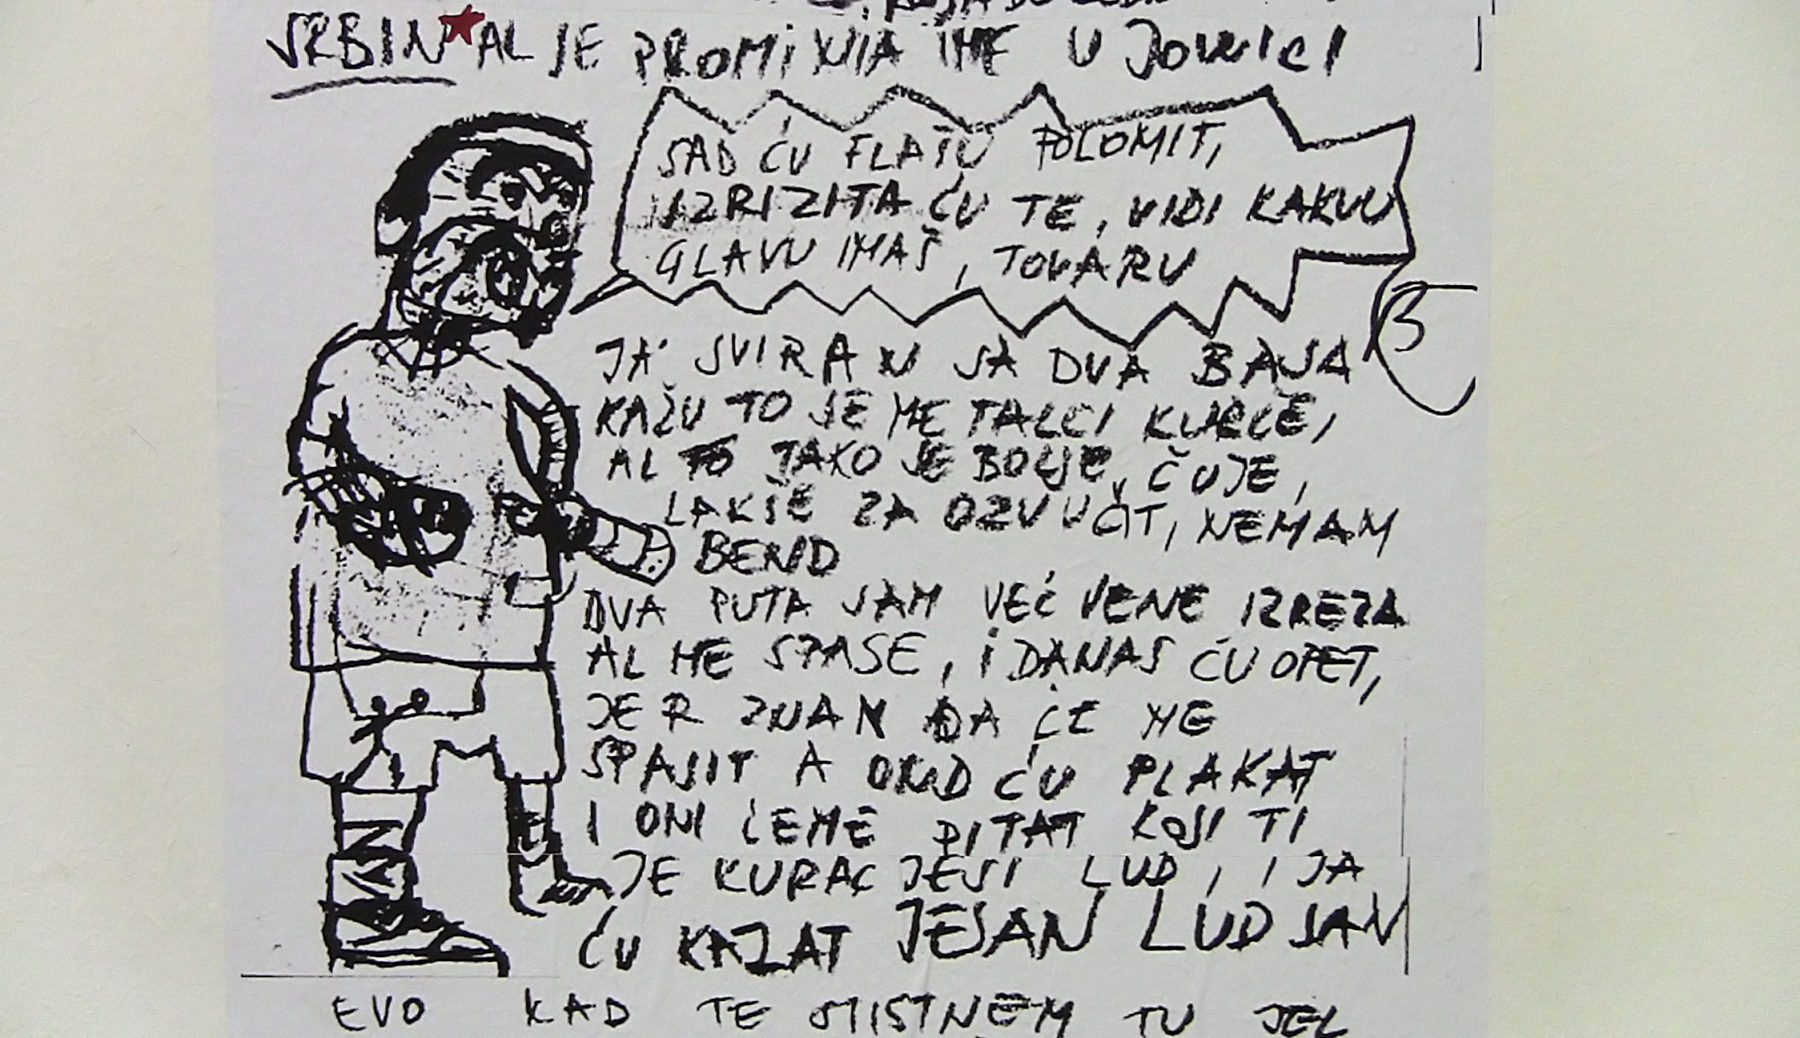 SRBIN AL JE PROMINIA IME U JOWICI
SAD ĆU FLAŠU POLOMIT,
IZRIZITA ĆU TE, VIDI KAKVU
GLAVU IMAŠ, TOVARU
JA SVIRAN SA DVA BASA
KAŽU TO JE METALCI KURCE,
AL JAKO JE BOLJE, ČUJE,
LAKŠE ZA OZVUČIT, NEMAM
BEND
DVA PUTA SAM VEĆ VENE IZREZA
AL ME SPASE, I DANAS ĆU OPET,
JER ZNAM DA ĆE ME
SPASIT A OND ĆU PLAKAT
I ONI ĆEME PITAT KOJI TI
JE KURAC JESI LUD, I JA
ĆU KAZAT JESAN LUD SAN
EVO KAD TE STISTNEM TU JEL